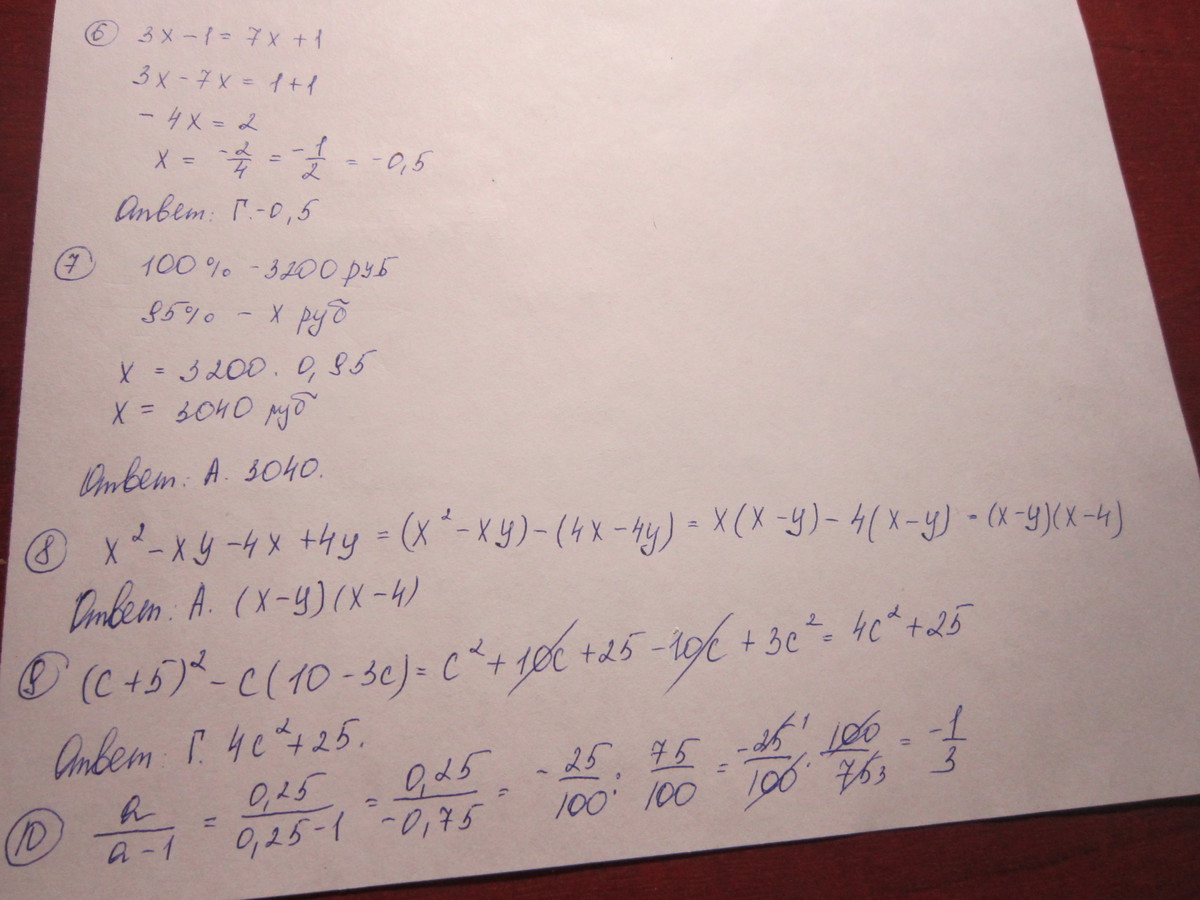 6 3x - 1 = 7x + 1
3x - 7x = 1 + 1
- 4x = 2
x = -2/4 = -1/2 = -0,5
Ответ: Г. -0,5
7 100% - 3200 руб
95% - x руб
x = 3200 · 0,95
x = 3040 руб
Ответ: А. 3040.
8 x² - xy - 4x + 4y = (x² - xy) - (4x - 4y) = x(x - y) - 4(x - y) = (x - y)(x - 4)
Ответ: А. (x - y)(x - 4)
9 (c + 5)² - c(10 - 3c) = c² + 10c + 25 - 10c + 3c² = 4c² + 25
Ответ: Г. 4c² + 25.
10 a/(a - 1) = 0,25/(0,25 - 1) = 0,25/(-0,75) = - 25/100 : 75/100 = -25 1/100 · 100/75 3 = -1/3